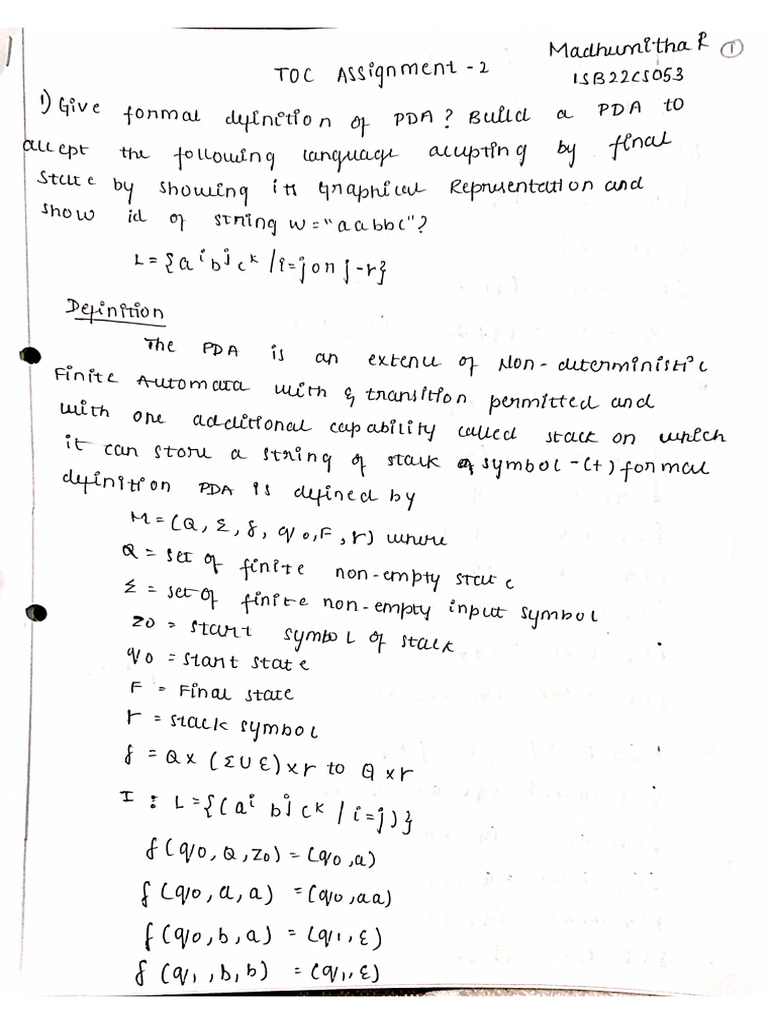 Madhumitha R ①
TOC Assignment - 2
1SB22CS053
1) Give formal definition of PDA? Build a PDA to
accept the following language accepting by final
state by showing its Graphical Representation and
show id of string w="aabbc"?
L={a^i b^j c^k / i=j or j-r}
Definition
The PDA is an extence of Non-deterministic
Finite Automata with ε transition permitted and
with one additional capability called stack on which
it can store a string of stack symbol-(t) formal
definition PDA is defined by
M=(Q, Σ, δ, q0, F, r) where
Q = set of finite non-empty state
Σ = set of finite non-empty input symbol
Z0 = start symbol of stack
q0 = start state
F = Final state
r = stack symbol
δ = Q x (Σ U ε) x r to Q x r
I : L={(a^i b^j c^k / i=j)}
δ(q0, a, Z0) = (q0, a)
δ(q0, a, a) = (q0, aa)
δ(q0, b, a) = (q1, ε)
δ(q1, b, b) = (q1, ε)